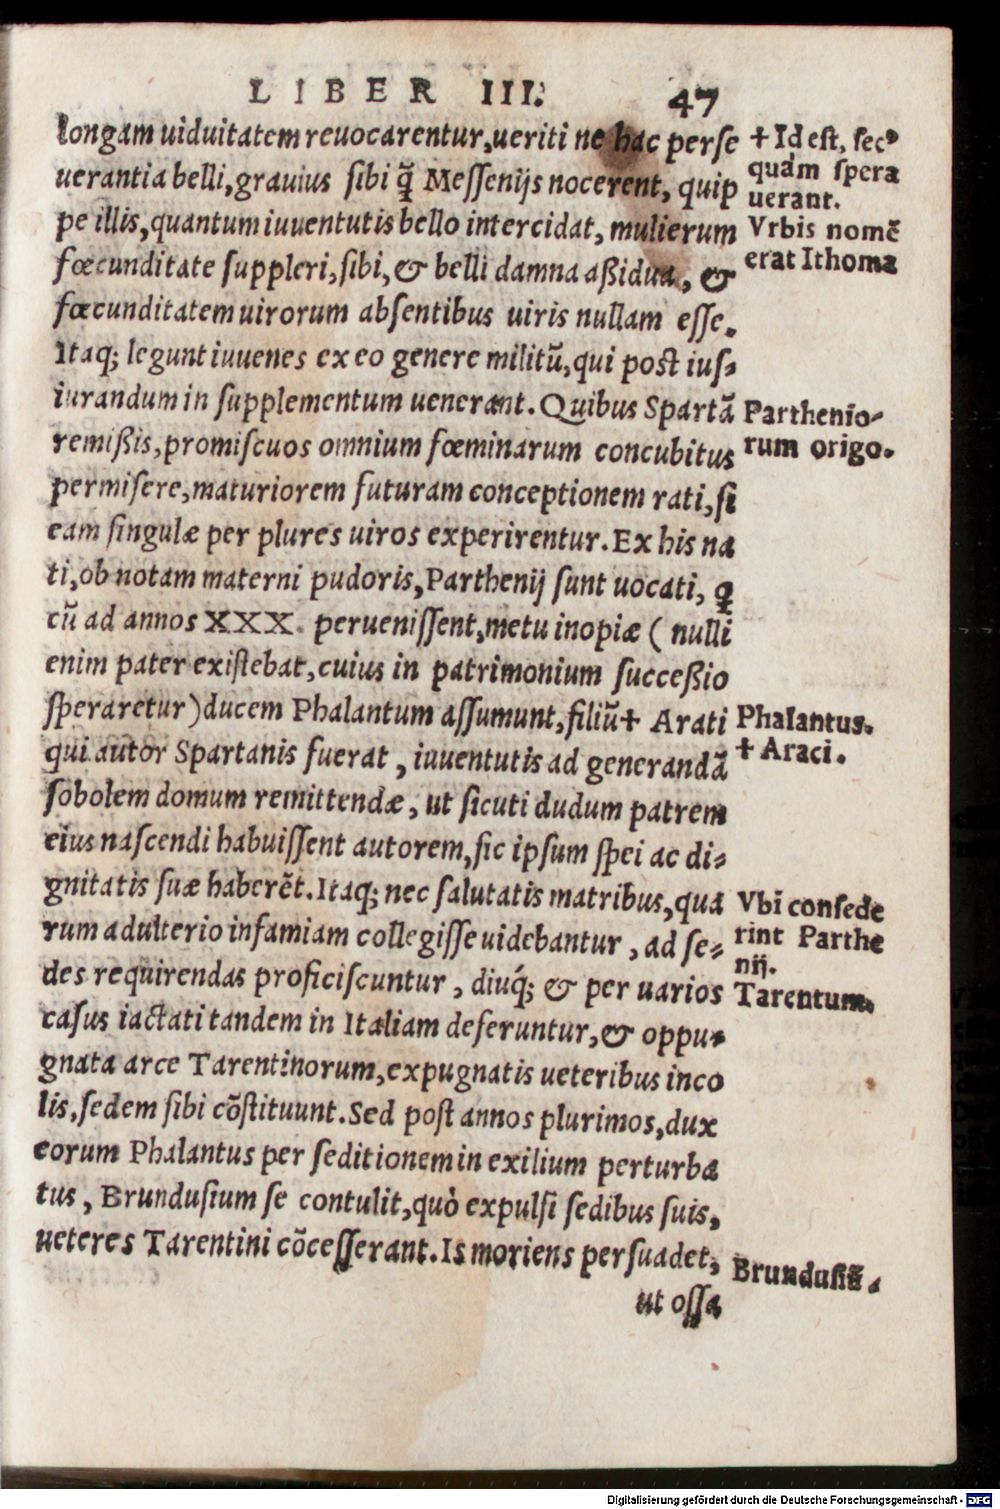 LIBER III. 47
longam uiduitatem reuocarentur, ueriti ne hac perse
uerantia belli, grauius sibi q̃ Messenijs nocerent, quip
pe illis, quantum iuuentutis bello intercidat, mulierum
fœcunditate suppleri, sibi, & belli damna aßidua, &
fœcunditatem uirorum absentibus uiris nullam esse.
Itaq; legunt iuuenes ex eo genere militũ, qui post ius-
iurandum in supplementum uenerant. Quibus Spartã
remißis, promiscuos omnium fœminarum concubitus
permisere, maturiorem futuram conceptionem rati, si
eam singulæ per plures uiros experirentur. Ex his na
ti, ob notam materni pudoris, Parthenij sunt uocati, q̃
cũ ad annos XXX. peruenissent, metu inopiæ (nulli
enim pater existebat, cuius in patrimonium succeßio
speraretur) ducem Phalantum assumunt, filiũ + Arati
qui autor Spartanis fuerat, iuuentutis ad generandã
sobolem domum remittendæ, ut sicuti dudum patrem
eius nascendi habuissent autorem, sic ipsum spei ac di-
gnitatis suæ haberẽt. Itaq; nec salutatis matribus, qua
rum adulterio infamiam collegisse uidebantur, ad se-
des requirendas proficiscuntur, diuq́; & per uarios
casus iactati tandem in Italiam deferuntur, & oppu-
gnata arce Tarentinorum, expugnatis ueteribus inco
lis, sedem sibi cõstituunt. Sed post annos plurimos, dux
eorum Phalantus per seditionem in exilium perturba
tus, Brundusium se contulit, quò expulsi sedibus suis,
ueteres Tarentini cõcesserant. Is moriens persuadet,
ut ossa
+ Id est, secꝰ
quàm spera
uerant.
Vrbis nomẽ
erat Ithoma
Parthenio-
rum origo.
Phalantus.
+ Araci.
Vbi consede
rint Parthe
nij.
Tarentum.
Brundusiũ.
Digitalisierung gefördert durch die Deutsche Forschungsgemeinschaft - DFG